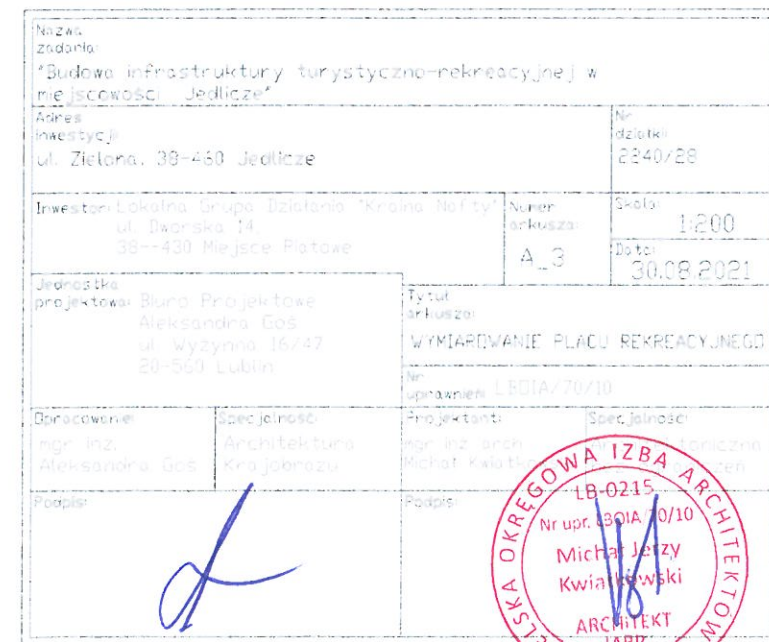 Nazwa
zadania:
"Budowa infrastruktury turystyczno-rekreacyjnej w
miejscowości Jedlicze"
Adres
inwestycji:
ul. Zielona, 38-460 Jedlicze
Nr
działki:
2240/28
Inwestor: Lokalna Grupa Działania "Kraina Nafty"
ul. Dworska 14,
38--430 Miejsce Piastowe
Numer
arkusza:
A_3
Skala:
1:200
Data:
30.08.2021
Jednostka
projektowa: Biuro Projektowe
Aleksandra Goś
ul. Wyżynna 16/47
20-560 Lublin
Tytuł
arkusza:
WYMIAROWANIE PLACU REKREACYJNEGO
Nr
uprawnień: LBOIA/70/10
Opracowanie:
mgr inż.
Aleksandra Goś
Specjalność:
Architektura
Krajobrazu
Projektant:
mgr inż. arch.
Michał
Specjalność:
Podpis:
Podpis:
OKRĘGOWA IZBA ARCHITEKTÓW
LB-0215
Nr upr. LBOIA/70/10
Michał Jerzy
Kwiatkowski
ARCHITEKT
IARP